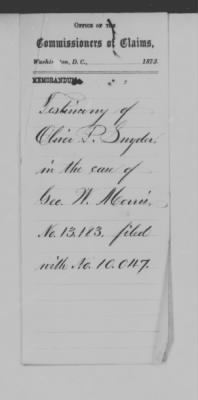 OFFICE OF THE
Commissioners of Claims,
Washington, D. C., 1873.
MEMORANDUM
Testimony of
Oliver P. Snyder,
in the case of
Geo. W. Morris,
No. 13,183, filed
with No. 10,047.